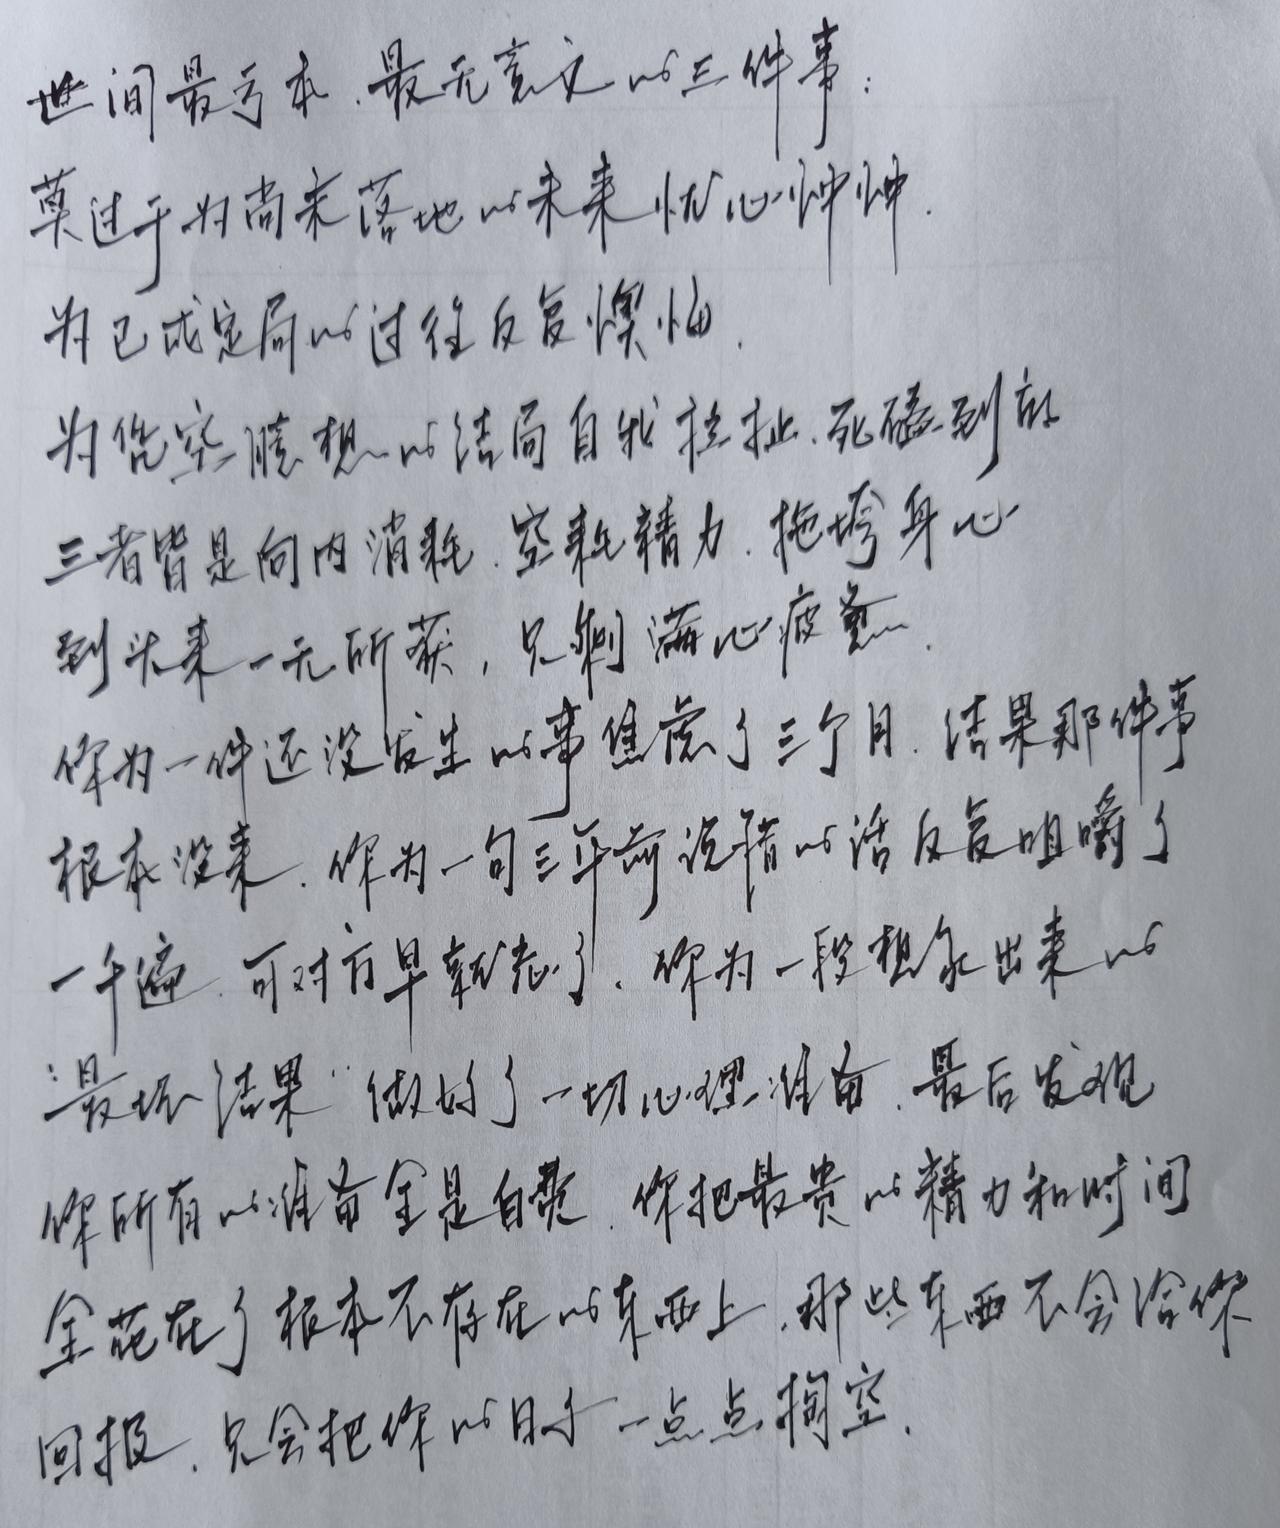 世间最亏本、最无意义的三件事：
莫过于为尚未落地的未来忧心忡忡、
为已成定局的过往反复懊悔、
为凭空臆想的结局自我拉扯、死磕到底
三者皆是向内消耗、空耗精力、拖垮身心
到头来一无所获，只剩满心疲惫、
你为一件还没发生的事焦虑了三个月、结果那件事
根本没来、你为一句三年前说错的话反复咀嚼了
一千遍、可对方早就忘了、你为一段想象出来的
“最坏结果”做好了一切心理准备、最后发现
你所有的准备全是白费、你把最贵的精力和时间
全花在了根本不存在的东西上、那些东西不会给你
回报、只会把你的日子一点点掏空、